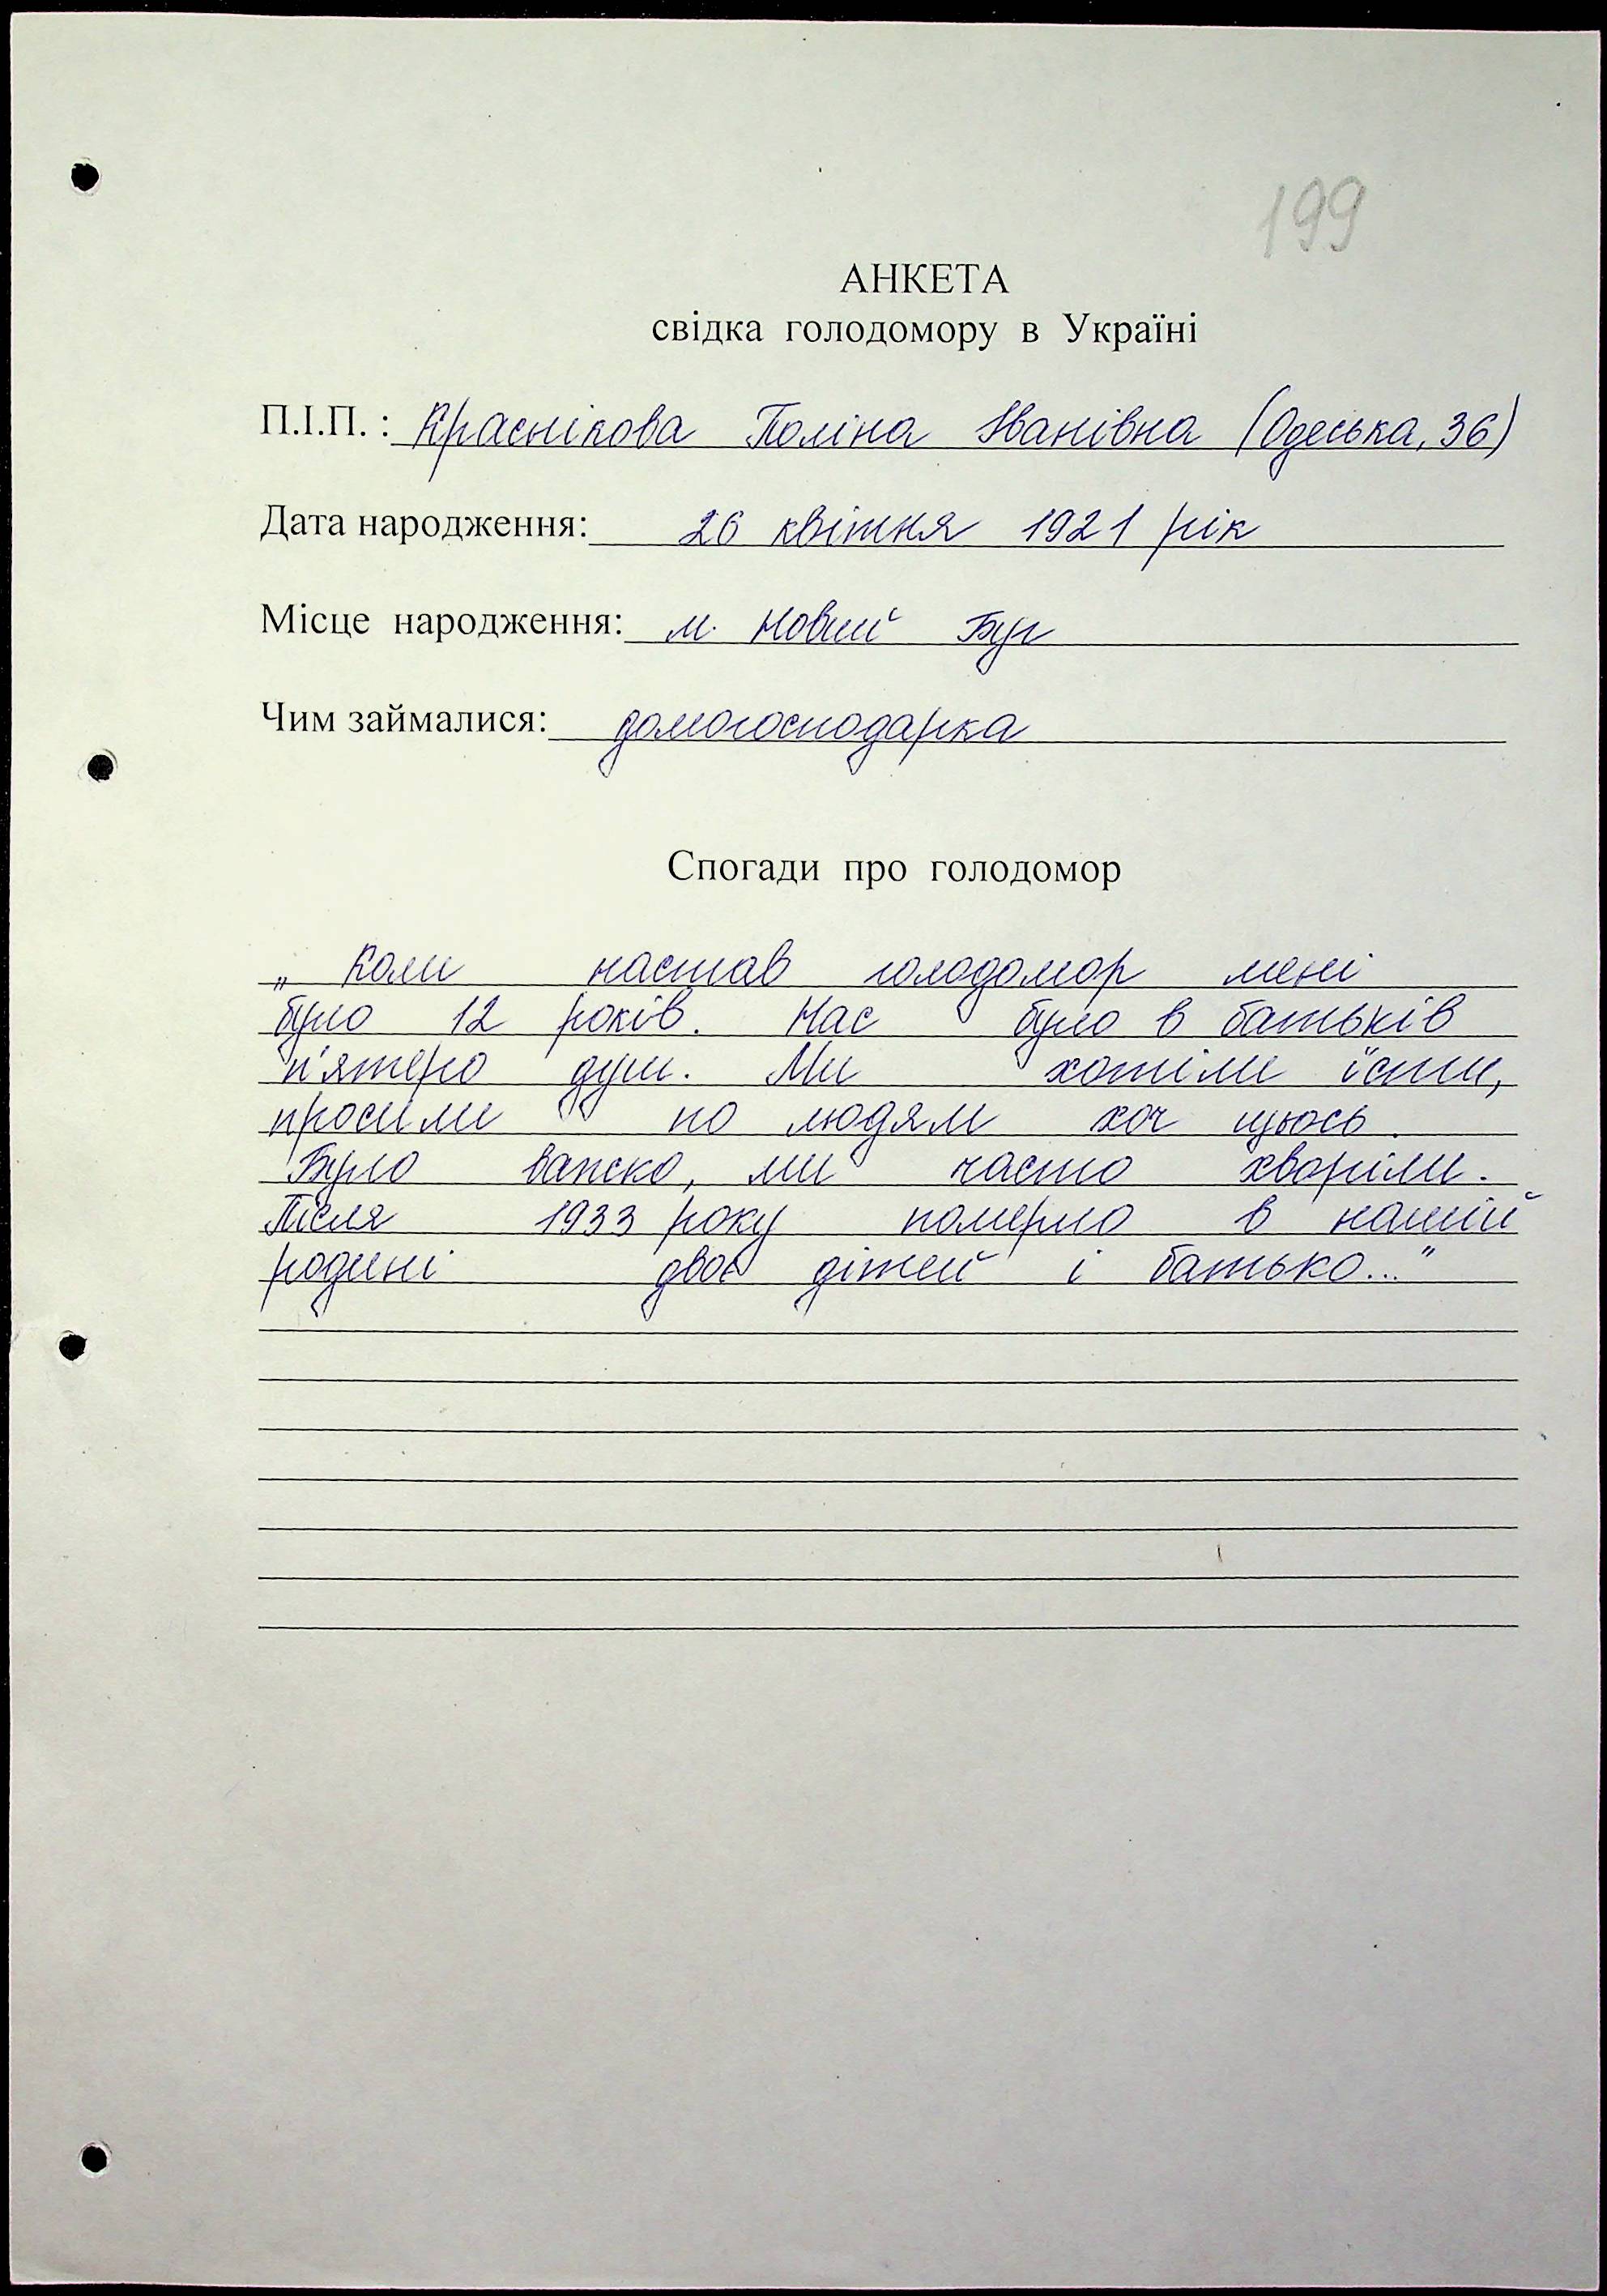 199
АНКЕТА
свідка голодомору в Україні
П.І.П. : Краснікова Поліна Іванівна (Одеська, 36)
Дата народження: 26 квітня 1921 рік
Місце народження: м. Новий Буг
Чим займалися: домогосподарка
Спогади про голодомор
„ Коли настав голодомор мені
було 12 років. Нас було в батьків
п'ятеро душ. Ми хотіли їсти,
просили по людям хоч щось.
Було важко, ми часто хворіли.
Після 1933 року померло в нашій
родині двоє дітей і батько..."